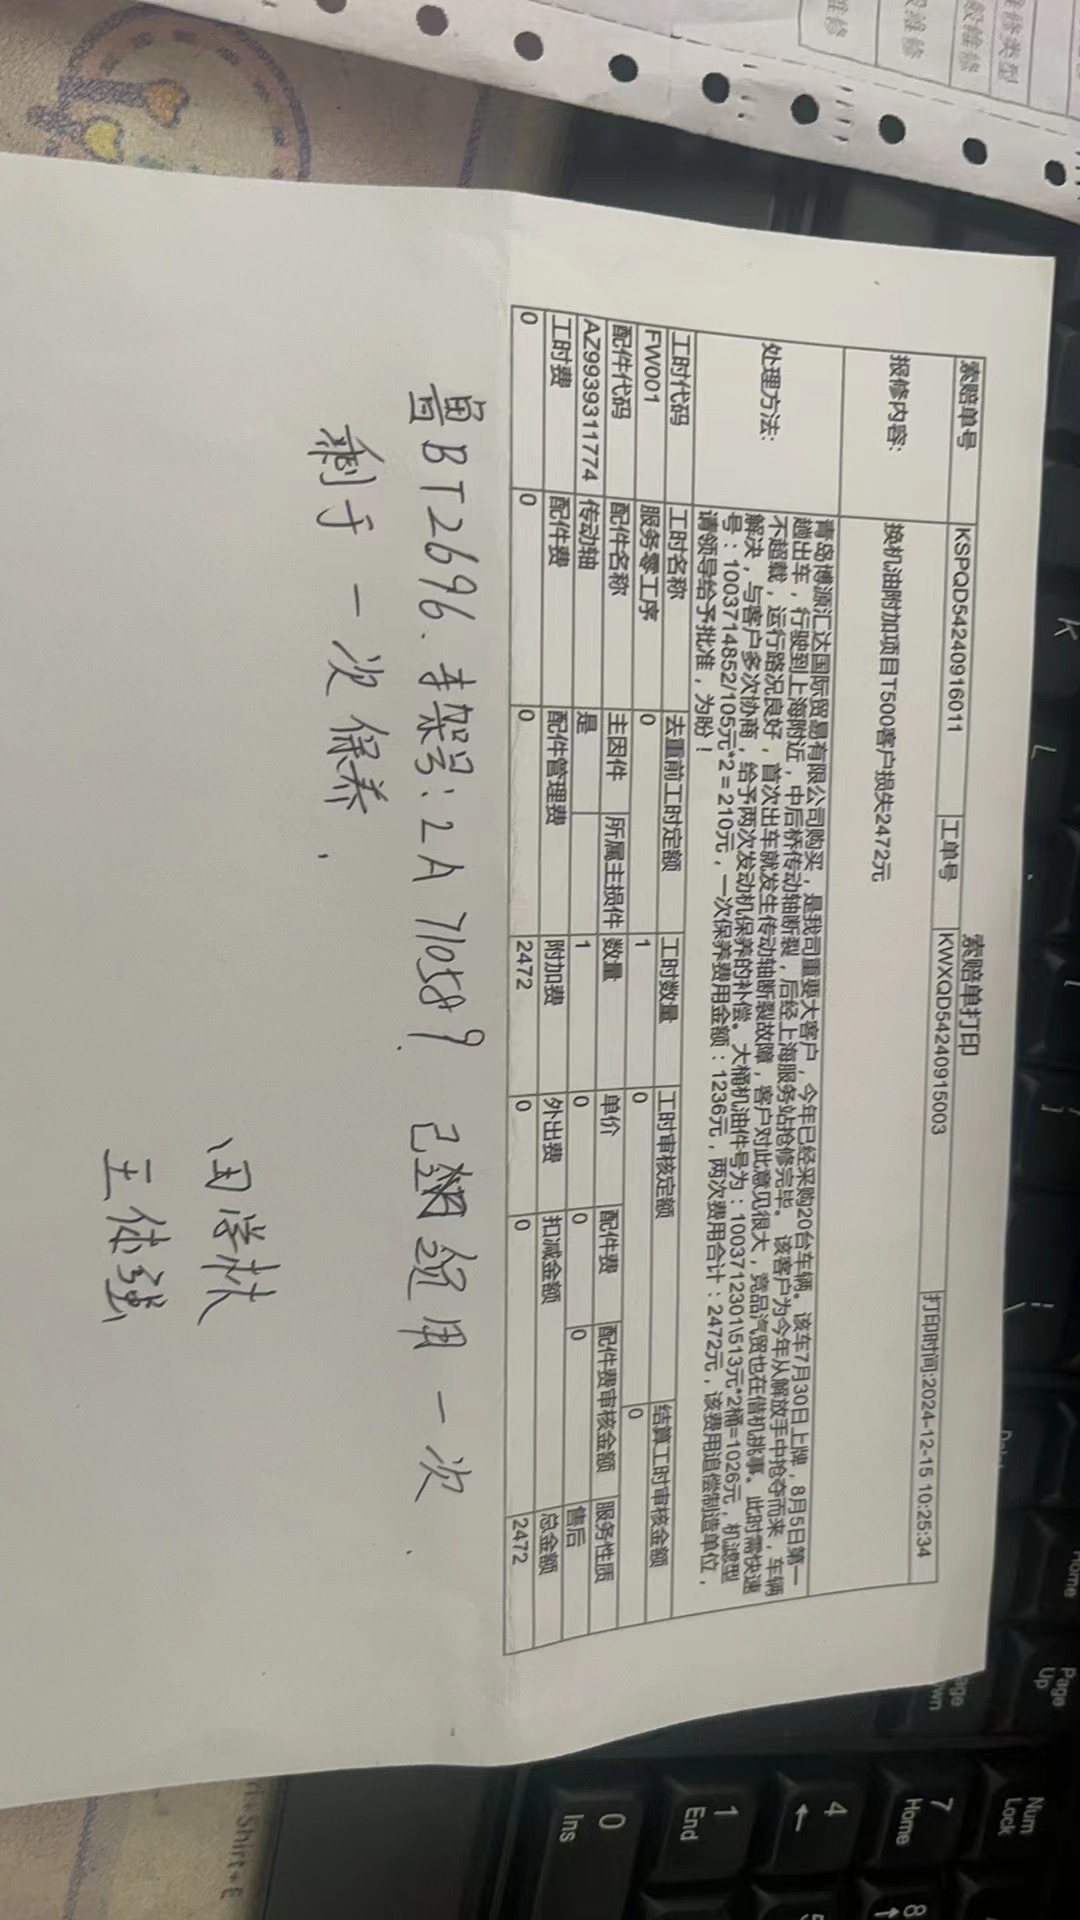 索赔单打印
打印时间:2024-12-15 10:25:34
索赔单号 KSPQD54240916011 工单号 KWXQD54240915003
报修内容: 换机油附加项目T500客户损失2472元
处理方法: 青岛博源汇达国际贸易有限公司购买，是我司重要大客户，今年已经采购20台车辆。该车7月30日上牌，8月5日第一
趟出车，行驶到上海附近，中后桥传动轴断裂，后经上海服务站抢修完毕。 该客户为今年从解放手中抢夺而来，车辆
不超载，运行路况良好，首次出车就发生传动轴断裂故障，客户对此意见很大，竞品汽贸也在借机挑事。此时需快速
解决，与客户多次协商，给予两次发动机保养的补偿。大桶机油件号为：1003712301\513元*2桶=1026元，机滤型
号：1003714852/105元*2＝210元，一次保养费用金额：1236元，两次费用合计：2472元，该费用追偿制造单位，
请领导给予批准，为盼！
工时代码 工时名称 去重前工时定额 工时数量 工时审核定额 结算工时审核金额
FW001 服务零工序 0 1 0 0
配件代码 配件名称 主因件 所属主损件 数量 单价 配件费 配件费审核金额 服务性质
AZ9939311774 传动轴 是 1 0 0 0 售后
工时费 配件费 配件管理费 附加费 外出费 扣减金额 总金额
0 0 0 2472 0 0 2472
鲁BT2696、车架号：2A710589 已经使用一次
剩于一次保养
王体强
维修类型
般维修
般维修
维修
K
L
Home
Page
Up
Num
Lock
7
Home
8
4
1
End
0
Ins